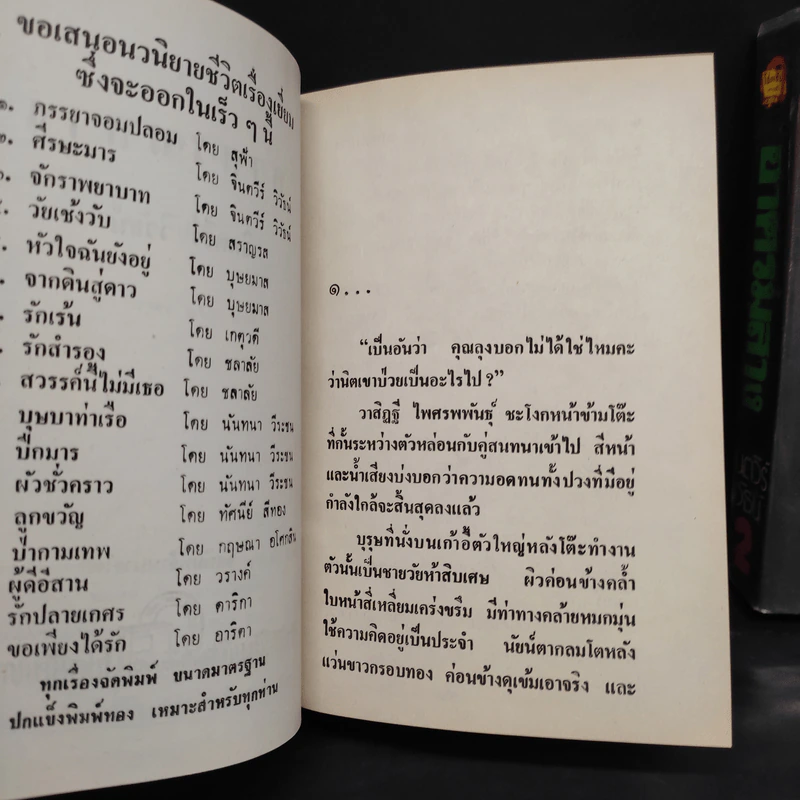 ขอเสนอนวนิยายชีวิตเรื่องเยี่ยม
ซึ่งจะออกในเร็ว ๆ นี้
๑. ภรรยาจอมปลอม โดย สุฟ้า
๒. ศีรษะมาร โดย จินตวีร์ วิวัธน์
๓. จักราพยาบาท โดย จินตวีร์ วิวัธน์
๔. วัยเช้งวับ โดย สราญรส
หัวใจฉันยังอยู่ โดย บุษยมาส
จากดินสู่ดาว โดย บุษยมาส
รักเร้น โดย เกตุวดี
รักสำรอง โดย ชลาลัย
สวรรค์นี้ไม่มีเธอ โดย ชลาลัย
บุษบาท่าเรือ โดย นันทนา วีระชน
ปีกมาร โดย นันทนา วีระชน
ผัวชั่วคราว โดย นันทนา วีระชน
ลูกขวัญ โดย ทัศนีย์ สีทอง
ป่ากามเทพ โดย กฤษณา อโศกสิน
ผู้ดีอีสาน โดย วรางค์
รักปลายเกศร โดย ดาริกา
ขอเพียงได้รัก โดย อาริตา
ทุกเรื่องจัดพิมพ์ ขนาดมาตรฐาน
ปกแข็งพิมพ์ทอง เหมาะสำหรับทุกท่าน
๑...
“เป็นอันว่า คุณลุงบอกไม่ได้ใช่ไหมคะ
ว่านิตเขาป่วยเป็นอะไรไป?”
วาสิฏฐี ไพศรพพันธุ์ ชะโงกหน้าข้ามโต๊ะ
ที่กั้นระหว่างตัวหล่อนกับคู่สนทนาเข้าไป สีหน้า
และน้ำเสียงบ่งบอกว่าความอดทนทั้งปวงที่มีอยู่
กำลังใกล้จะสิ้นสุดลงแล้ว
บุรุษที่นั่งบนเก้าอี้ตัวใหญ่หลังโต๊ะทำงาน
ตัวนั้นเป็นชายวัยห้าสิบเศษ ผิวค่อนข้างคล้ำ
ใบหน้าสี่เหลี่ยมเคร่งขรึม มีท่าทางคล้ายหมกมุ่น
ใช้ความคิดอยู่เป็นประจำ นัยน์ตากลมโตหลัง
แว่นขาวกรอบทอง ค่อนข้างดุเข้มเอาจริง และ